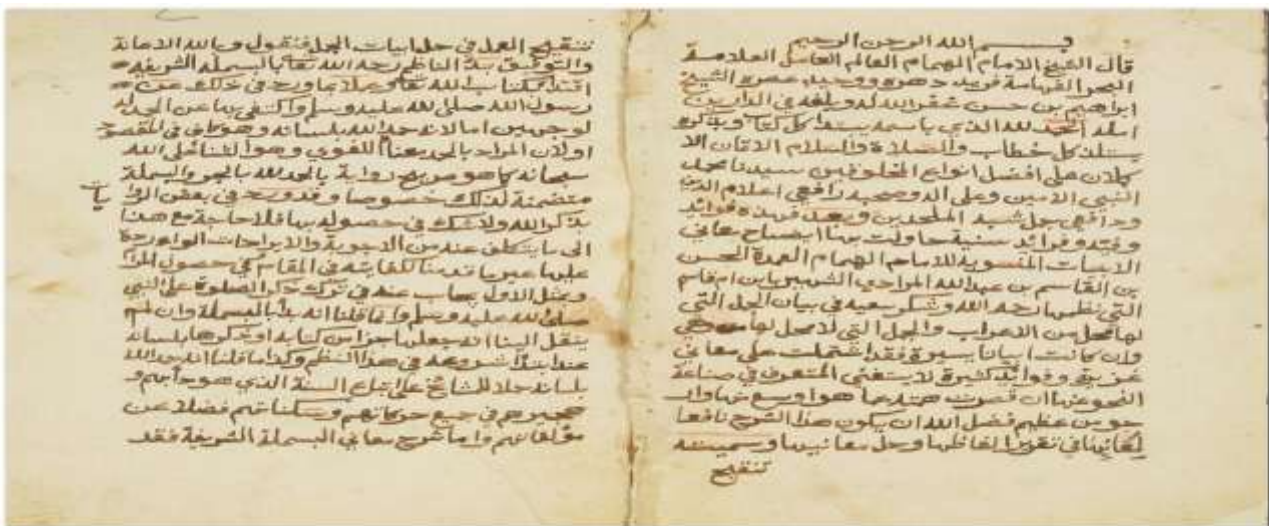 بسم الله الرحمن الرحيم
قال الشيخ الامام الهمام العالم العامل العلامة
البحر الفهامة فريد دهره ووحيد عصره الشيخ
ابراهيم بن حسن غفر الله له وبلغه في الدارين
امله الحمد لله الذي باسمه يبتدا كل كتاب وبذكره
يستلذ كل خطاب والصلاة والسلام الاتمان الا
كملان على افضل انواع المخلوقين سيدنا محمد
النبي الامين وعلى اله وصحبه رافعي اعلام الدين
ودافعي شبه الملحدين وبعد فهذه فوائد
وفرائد سنية حاولت بها ايضاح معاني
الابيات المنسوبة للامام الهمام العمدة الحسن
بن القاسم بن عبد الله المرادي الشهير بابن ام قاسم
التي نظمها رحمه الله وشكر سعيه في بيان الجمل التي
لها محل من الاعراب والجمل التي لا محل لها وهي
وان كانت ابياتا يسيرة فقد اشتملت على معاني
غزيرة وفوائد كثيرة لا يستغني في صناعة
النحو عنها وان قصرت عما هو اوسع منها وار
جو من عظيم فضل الله ان يكون هذا الشرح نافعا
في تقرير الفاظها وحل معانيها وسميته
تنقيح
تنقيح العمل في حل ابيات الجمل فنقول وبالله الاعانة
والتوفيق بدا الناظم رحمه الله تعا بالبسملة الشريفة
اقتدا بكتاب الله تعا وعملا بما ورد في ذلك عن
رسول الله صلى الله عليه وسلم واكتفى بها عن الحمدلة
لوجهين اما لانه حمد الله بلسانه وهو كافي في المقصود
او لان المراد بالحمد معناه اللغوي وهو الثنا على الله
سبحانه كما هو رواية بالحمد لله بالجر والبسملة
متضمنة لذلك خصوصا وقد ورد في بعض الروا
يات
بذكر الله ولا شك في حصوله بها فلا حاجة مع هذا
الى ما يتكلف عنه من الاجوبة والايرادات الواردة
عليها غير ما قدمنا لكفايته في المقام في حصول المرا
وبمثل الاول يجاب عنه في ترك ذكر الصلوة على النبي
صلى الله عليه وسلم وانما قلنا انه بدا بالبسملة وان لم
ينقل الينا انه جعلها جزا من كتابه او ذكرها بلسانه
عند ابتدا شروعه في هذا النظم وكذا ما قلنا انه حمد الله
بلسانه حملا للمشايخ على اتباع السنة الذي هو دابهم و
في جميع حركاتهم وسكناتهم فضلا عن
مؤلفاتهم واما شرح معاني البسملة الشريفة فقد